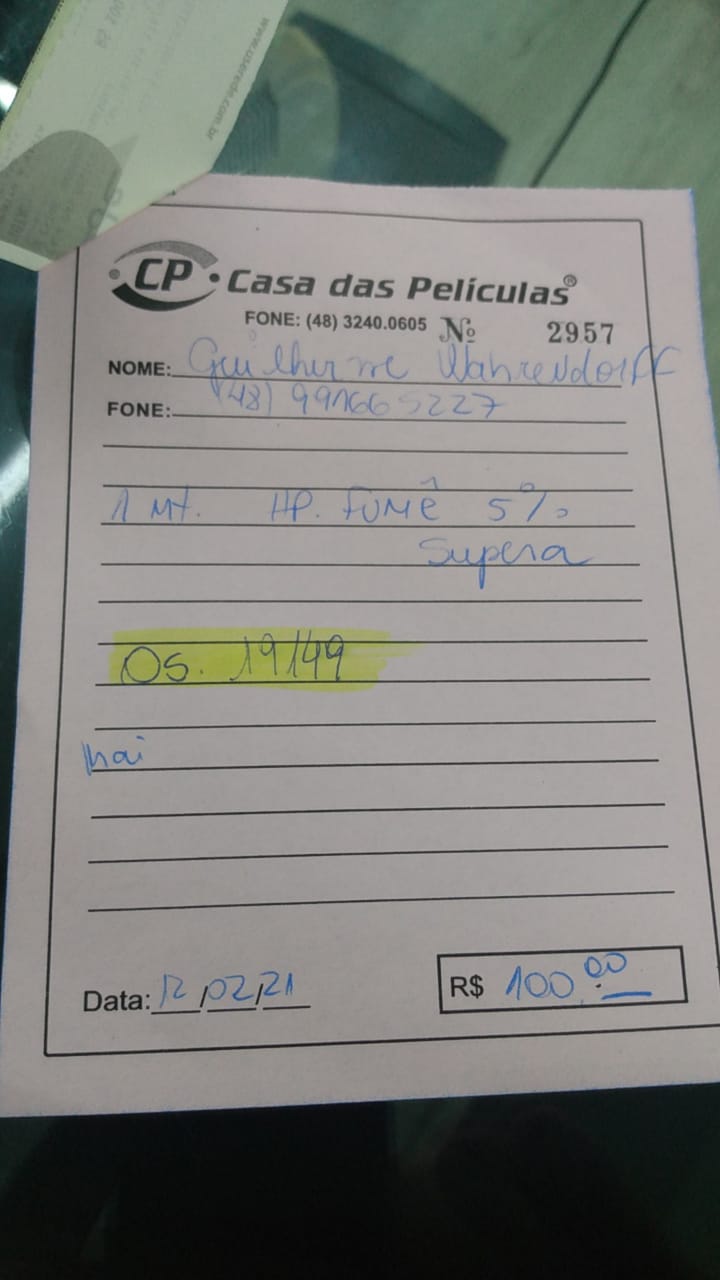 www.userede.com.br
CP Casa das Películas®
FONE: (48) 3240.0605 Nº 2957
NOME: Guilherme Wahrendorff
FONE: (48) 991665227
1 Mt. HP. FUMÊ 5%
Supera
OS. 19149
Data: 12/02/21 R$ 100,00